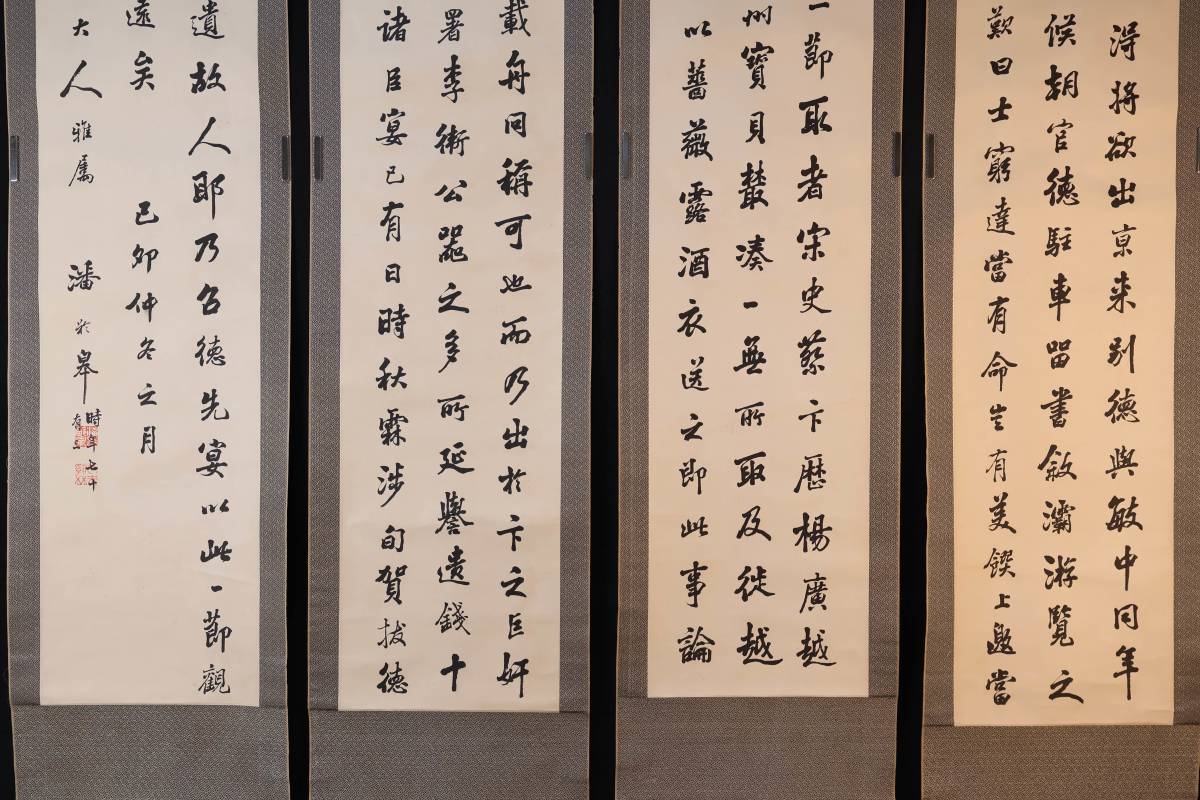 淂將欲出京來别德與敏中同年
候朝官德駐車留書敘灞游覽之
歎曰士窮達當有命豈有美饌上邀當
一莭取者宋史蔡卞歷楊廣越
州寶貝叢湊一無所取及徙越
以薔薇露酒衣送之即此事論
載舟同稱可也而乃出於卞之巨奸
署李衛公器之多所延譽遺錢十
諸臣宴已有日時秋霖涉旬賀拔德
遺故人耶乃召德先宴以此一莭觀
遠矣 己卯仲冬之月
大人雅属 潘 皋時年七十